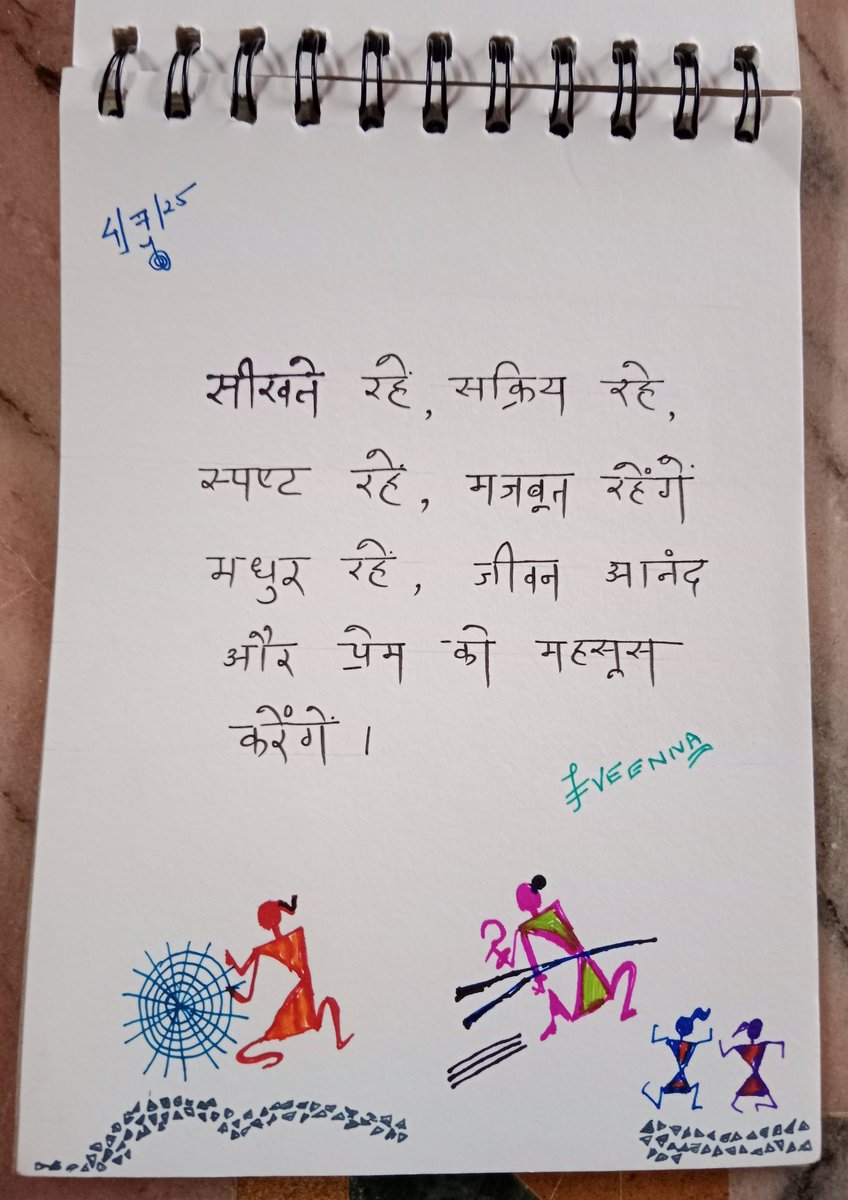 4/7/25
सीखते रहें, सक्रिय रहे,
स्पष्ट रहें, मजबूत रहेंगें
मधुर रहें, जीवन आनंद
और प्रेम को महसूस
करेंगें।
VEENNA